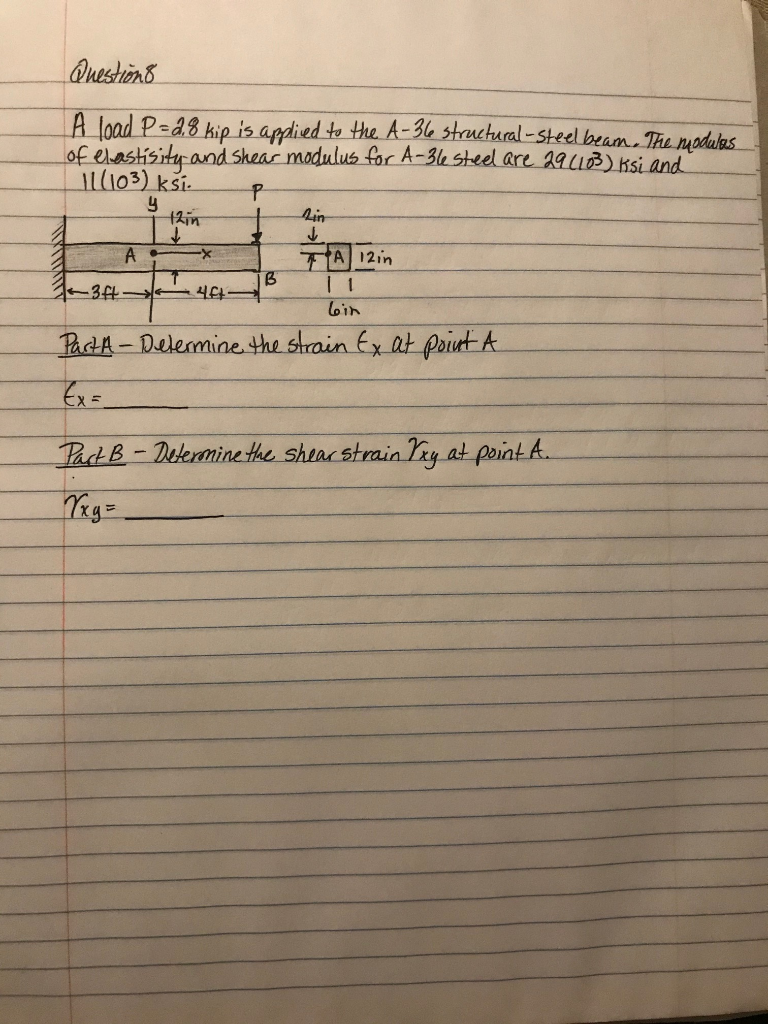 Question 8
A load P=2.8 kip is applied to the A-36 structural-steel beam. The modulus
of elastisity and shear modulus for A-36 steel are 29(10³) ksi and
11(10³) ksi.
y
12in
P
2in
A
x
A
12in
B
3ft
4ft
6in
Part A - Determine the strain Ɛx at point A
Ɛx = ______
Part B - Determine the shear strain γxy at point A.
γxy = ______